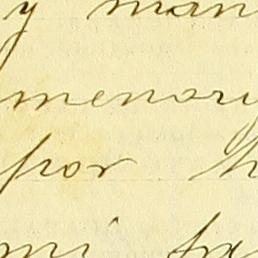 y man
menory
por h
mi fa